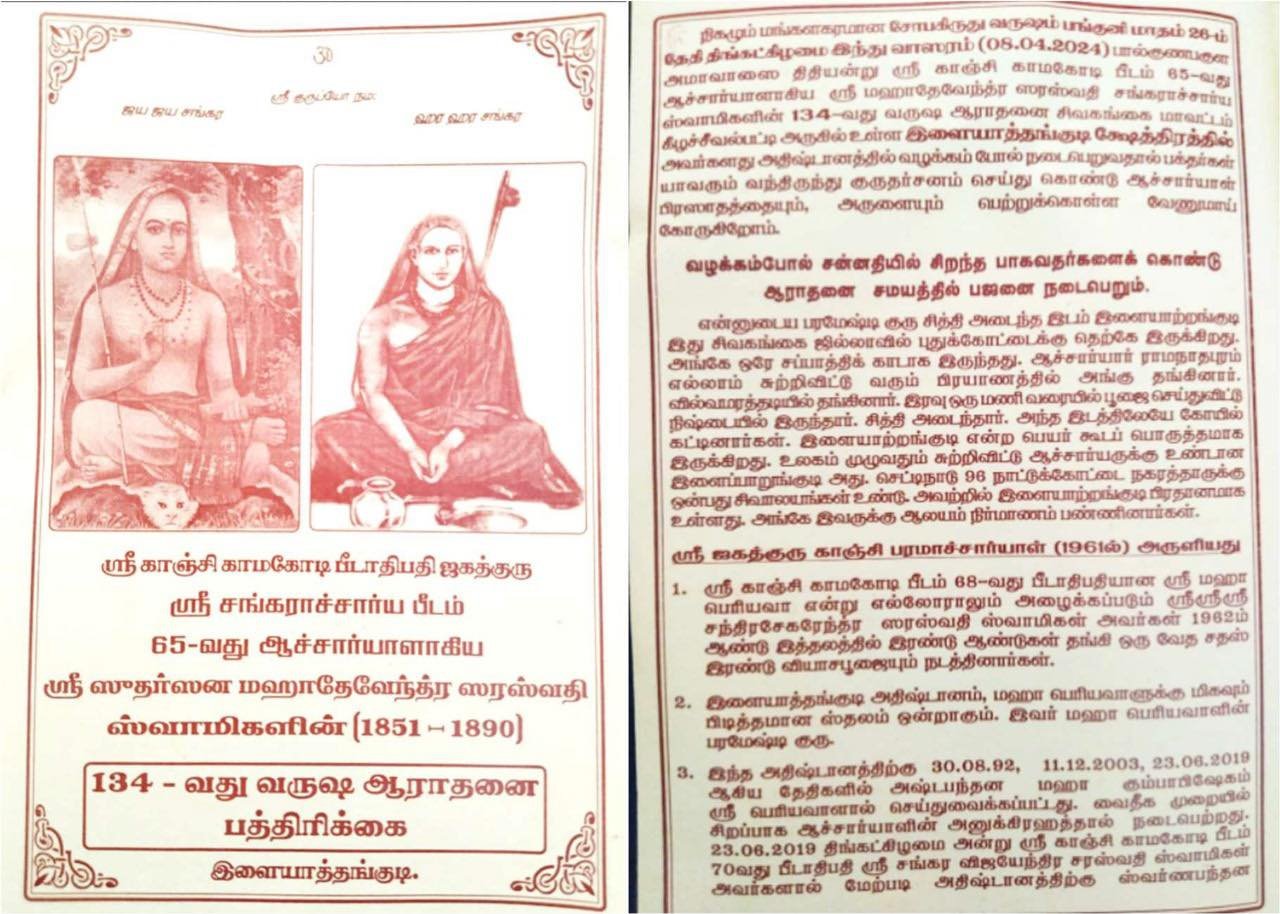 ௐ
ஸ்ரீ குருப்யோ நம:
ஜய ஜய சங்கர
ஹர ஹர சங்கர
ஸ்ரீ காஞ்சி காமகோடி பீடாதிபதி ஜகத்குரு
ஸ்ரீ சங்கராச்சார்ய பீடம்
65-வது ஆச்சார்யாளாகிய
ஸ்ரீ ஸுதர்ஸன மஹாதேவேந்த்ர ஸரஸ்வதி
ஸ்வாமிகளின் (1851 - 1890)
134 - வது வருஷ ஆராதனை
பத்திரிக்கை
இளையாத்தங்குடி.
நிகழும் மங்களகரமான சோபகிருது வருஷம் பங்குனி மாதம் 26-ம்
தேதி திங்கட்கிழமை இந்து வாஸரம் (08.04.2024) பால்குணபகுள
அமாவாஸை திதியன்று ஸ்ரீ காஞ்சி காமகோடி பீடம் 65-வது
ஆச்சார்யாளாகிய ஸ்ரீ மஹாதேவேந்த்ர ஸரஸ்வதி சங்கராச்சார்ய
ஸ்வாமிகளின் 134-வது வருஷ ஆராதனை சிவகங்கை மாவட்டம்
கீழச்சீவல்பட்டி அருகில் உள்ள இளையாத்தங்குடி க்ஷேத்திரத்தில்
அவர்களது அதிஷ்டானத்தில் வழக்கம் போல் நடைபெறுவதால் பக்தர்கள்
யாவரும் வந்திருந்து குருதர்சனம் செய்து கொண்டு ஆச்சார்யாள்
பிரஸாதத்தையும், அருளையும் பெற்றுக்கொள்ள வேணுமாய்
கோருகிறோம்.
வழக்கம்போல் சன்னதியில் சிறந்த பாகவதர்களைக் கொண்டு
ஆராதனை சமயத்தில் பஜனை நடைபெறும்.
என்னுடைய பரமேஷ்டி குரு சித்தி அடைந்த இடம் இளையாற்றங்குடி
இது சிவகங்கை ஜில்லாவில் புதுக்கோட்டைக்கு தெற்கே இருக்கிறது.
அங்கே ஒரே சப்பாத்திக் காடாக இருந்தது. ஆச்சார்யார் ராமநாதபுரம்
எல்லாம் சுற்றிவிட்டு வரும் பிரயாணத்தில் அங்கு தங்கினார்.
வில்வமரத்தடியில் தங்கினார். இரவு ஒரு மணி வரையில் பூஜை செய்துவிட்டு
நிஷ்டையில் இருந்தார். சித்தி அடைந்தார். அந்த இடத்திலேயே கோயில்
கட்டினார்கள். இளையாற்றங்குடி என்ற பெயர் கூடப் பொருத்தமாக
இருக்கிறது. உலகம் முழுவதும் சுற்றிவிட்டு ஆச்சார்யருக்கு உண்டான
இளைப்பாறுங்குடி அது. செட்டிநாடு 96 நாட்டுக்கோட்டை நகரத்தாருக்கு
ஒன்பது சிவாலயங்கள் உண்டு. அவற்றில் இளையாற்றங்குடி பிரதானமாக
உள்ளது. அங்கே இவருக்கு ஆலயம் நிர்மாணம் பண்ணினார்கள்.
ஸ்ரீ ஜகத்குரு காஞ்சி பரமாச்சார்யாள் (1961ல்) அருளியது
1. ஸ்ரீ காஞ்சி காமகோடி பீடம் 68-வது பீடாதிபதியான ஸ்ரீ மஹா
பெரியவா என்று எல்லோராலும் அழைக்கப்படும் ஸ்ரீஸ்ரீஸ்ரீ
சந்திரசேகரேந்த்ர ஸரஸ்வதி ஸ்வாமிகள் அவர்கள் 1962ம்
ஆண்டு இத்தலத்தில் இரண்டு ஆண்டுகள் தங்கி ஒரு வேத சதஸ்
இரண்டு வியாசபூஜையும் நடத்தினார்கள்.
2. இளையாத்தங்குடி அதிஷ்டானம், மஹா பெரியவாளுக்கு மிகவும்
பிடித்தமான ஸ்தலம் ஒன்றாகும். இவர் மஹா பெரியவாளின்
பரமேஷ்டி குரு.
3. இந்த அதிஷ்டானத்திற்கு 30.08.92, 11.12.2003, 23.06.2019
ஆகிய தேதிகளில் அஷ்டபந்தன மஹா கும்பாபிஷேகம்
ஸ்ரீ பெரியவாளால் செய்துவைக்கப்பட்டது. வைதீக முறையில்
சிறப்பாக ஆச்சார்யாளின் அனுக்கிரஹத்தால் நடைபெற்றது.
23.06.2019 திங்கட்கிழமை அன்று ஸ்ரீ காஞ்சி காமகோடி பீடம்
70வது பீடாதிபதி ஸ்ரீ சங்கர விஜயேந்திர சரஸ்வதி ஸ்வாமிகள்
அவர்களால் மேற்படி அதிஷ்டானத்திற்கு ஸ்வர்ணபந்தன